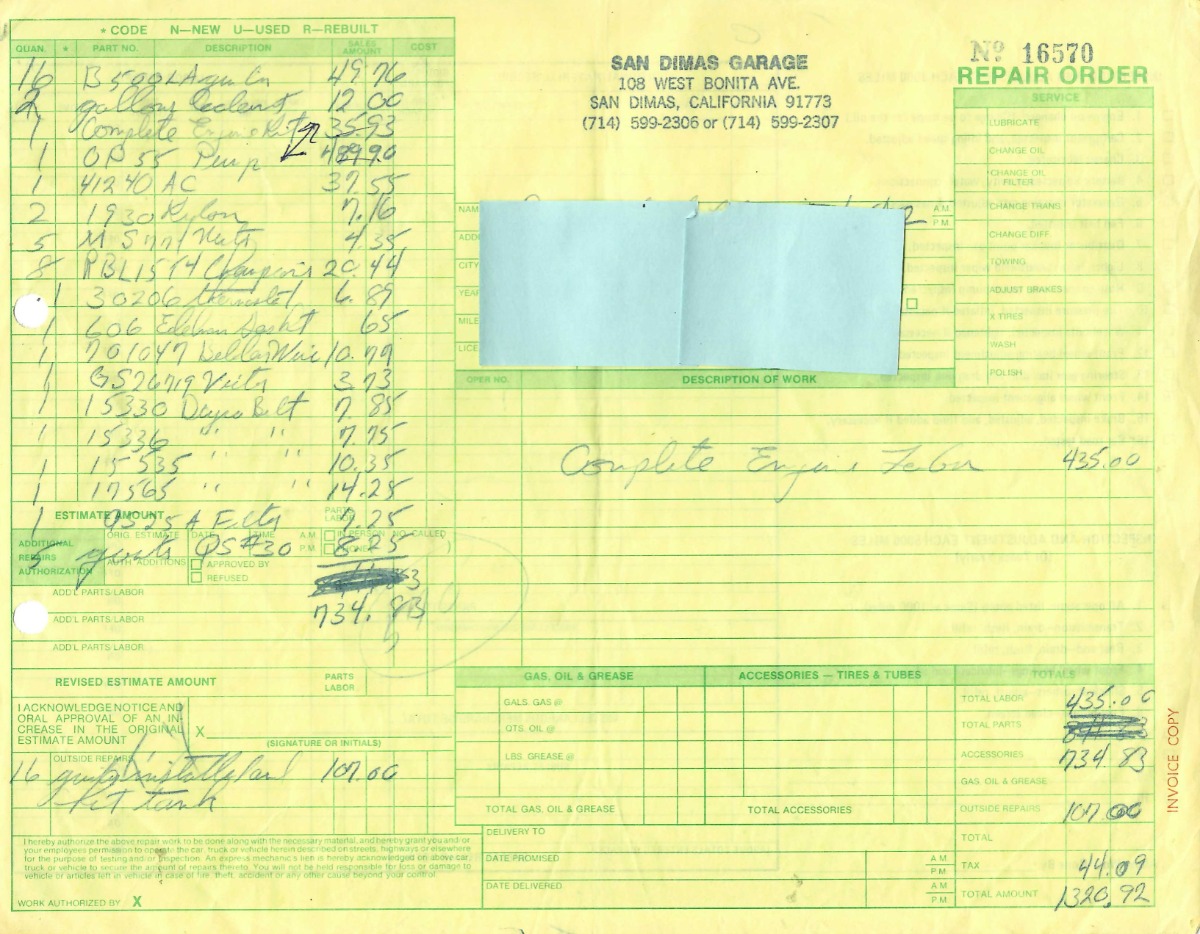 * CODE N—NEW U—USED R—REBUILT
QUAN. * PART NO. DESCRIPTION SALES AMOUNT COST
16 B500 49.76
2 gallons Coolant 12 00
1 Complete Engine Kit 35 93
1 OP 55 Pump
1 41240 AC 37.55
2 1930 Nylon 7.16
5 4.35
8 RBL15 Champions 20.44
1 30206 thermostat 6.89
1 606 Gasket 65
1 701047 Wire 10.79
1 GS26719 3.73
1 15330 Dayco Belt 7.85
1 15336 " " 7.75
1 15535 " " 10.35
1 17565 " " 14.25
ESTIMATE AMOUNT PARTS LABOR
1 A Filter .25
ORIG. ESTIMATE DATE TIME A.M. P.M. IN PERSON NO. CALLED
ADDITIONAL REPAIRS AUTHORIZATION
5 quarts QS #30 8.25
AUTH. ADDITIONS APPROVED BY
REFUSED
ADD'L PARTS LABOR
734.83
ADD'L PARTS LABOR
ADD'L PARTS LABOR
REVISED ESTIMATE AMOUNT PARTS LABOR
I ACKNOWLEDGE NOTICE AND
ORAL APPROVAL OF AN IN-
CREASE IN THE ORIGINAL
ESTIMATE AMOUNT
X
(SIGNATURE OR INITIALS)
OUTSIDE REPAIRS
16 107.00
tank
I hereby authorize the above repair work to be done along with the necessary material, and hereby grant you and/or
your employees permission to operate the car, truck or vehicle herein described on streets, highways or elsewhere
for the purpose of testing and/or inspection. An express mechanic's lien is hereby acknowledged on above car,
truck or vehicle to secure the amount of repairs thereto. You will not be held responsible for loss or damage to
vehicle or articles left in vehicle in case of fire, theft, accident or any other cause beyond your control.
WORK AUTHORIZED BY X
SAN DIMAS GARAGE
108 WEST BONITA AVE.
SAN DIMAS, CALIFORNIA 91773
(714) 599-2306 or (714) 599-2307
Nº 16570
REPAIR ORDER
SERVICE
LUBRICATE
CHANGE OIL
CHANGE OIL FILTER
CHANGE TRANS
CHANGE DIFF
TOWING
ADJUST BRAKES
X TIRES
WASH
POLISH
NAM
ADD
CITY
YEA
MILE
LICE
A.M.
P.M.
OPER NO. DESCRIPTION OF WORK
Complete Engine Labor 435.00
GAS, OIL & GREASE ACCESSORIES — TIRES & TUBES TOTALS
GALS. GAS @
QTS. OIL @
LBS. GREASE @
TOTAL GAS, OIL & GREASE TOTAL ACCESSORIES
TOTAL LABOR 435.00
TOTAL PARTS
ACCESSORIES 734 83
GAS, OIL & GREASE
OUTSIDE REPAIRS 107.00
TOTAL
TAX 44.09
TOTAL AMOUNT 1320.92
DELIVERY TO
DATE PROMISED A.M. P.M.
DATE DELIVERED A.M. P.M.
INVOICE COPY